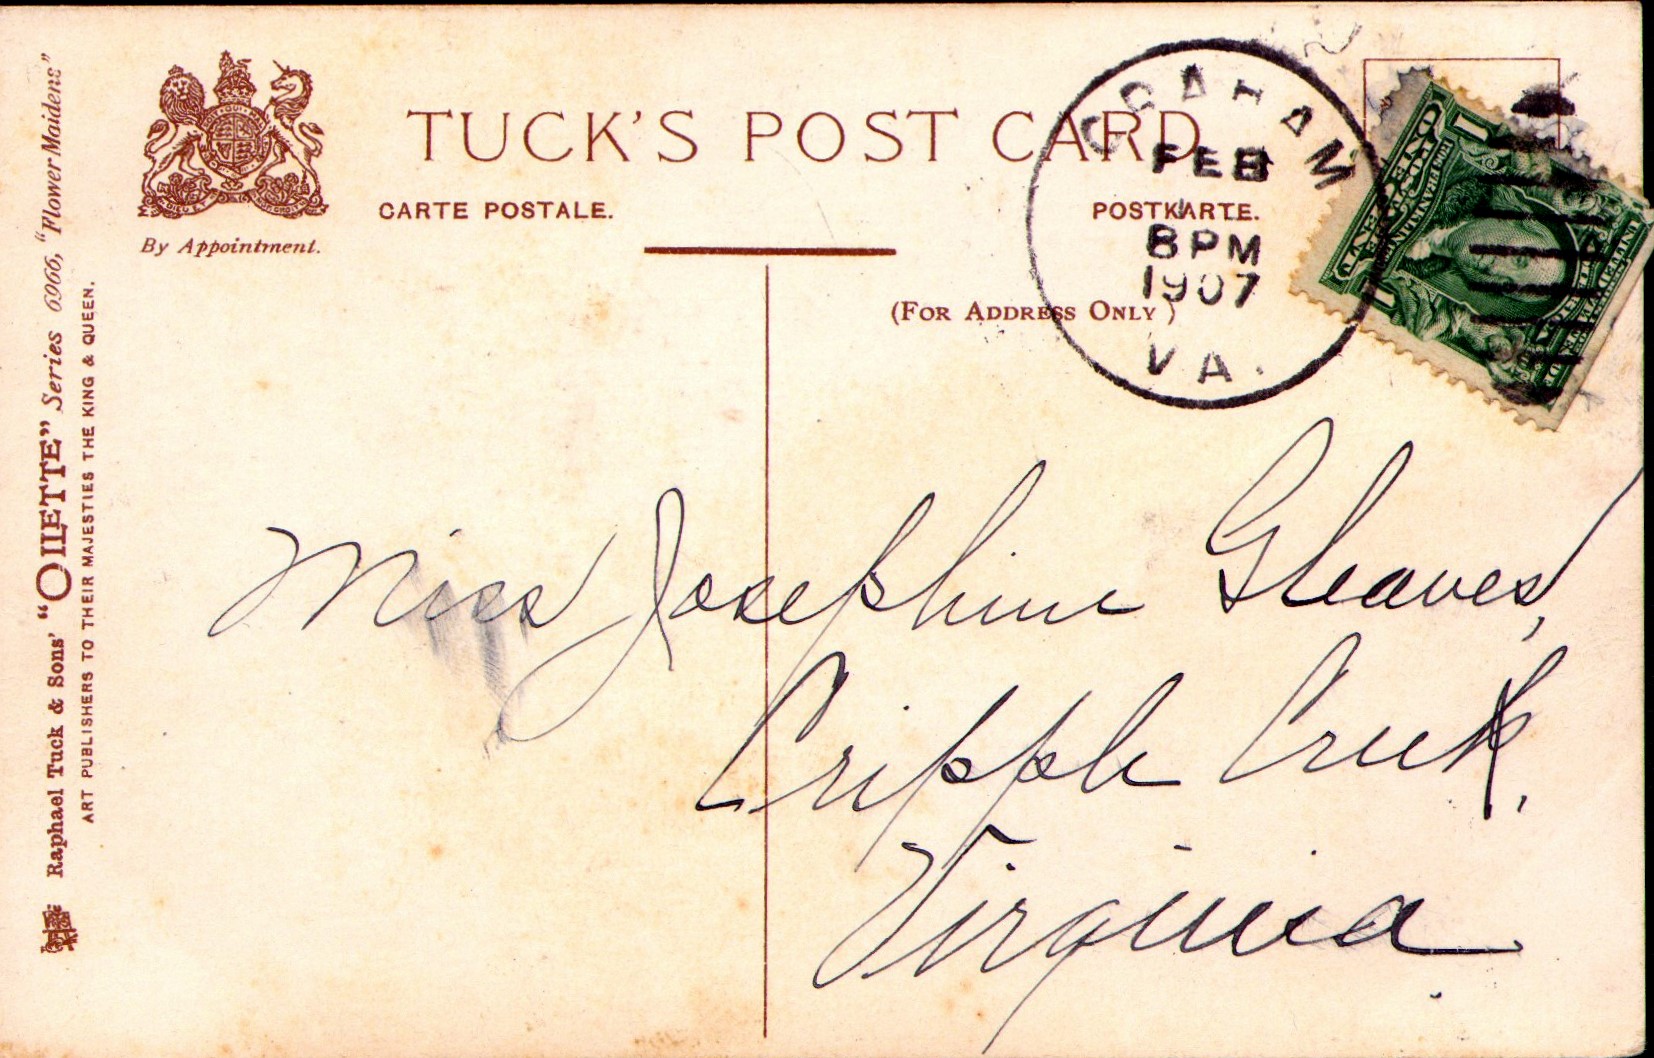 TUCK'S POST CARD
CARTE POSTALE.
POSTKARTE.
By Appointment.
(FOR ADDRESS ONLY)
Raphael Tuck & Sons' "OILETTE" Series 6966, "Flower Maidens"
ART PUBLISHERS TO THEIR MAJESTIES THE KING & QUEEN.
GRAHAM
FEB
1
8 PM
1907
VA.
1
1
Miss Josephine Gleaves,
Cripple Creek,
Virginia